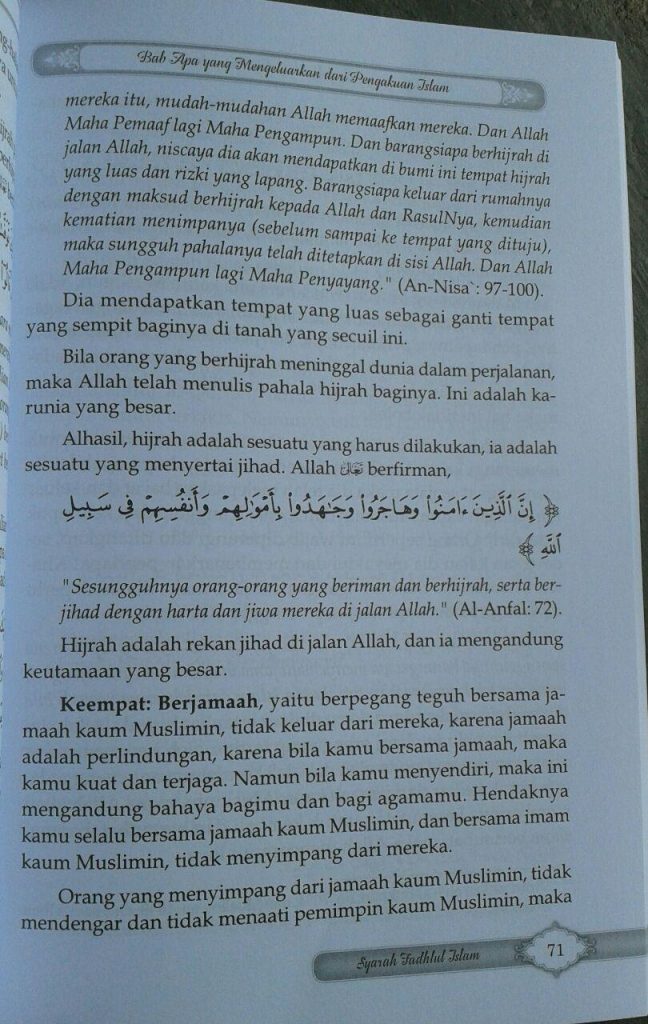 Bab Apa yang Mengeluarkan dari Pengakuan Islam
mereka itu, mudah-mudahan Allah memaafkan mereka. Dan Allah
Maha Pemaaf lagi Maha Pengampun. Dan barangsiapa berhijrah di
jalan Allah, niscaya dia akan mendapatkan di bumi ini tempat hijrah
yang luas dan rizki yang lapang. Barangsiapa keluar dari rumahnya
dengan maksud berhijrah kepada Allah dan RasulNya, kemudian
kematian menimpanya (sebelum sampai ke tempat yang dituju),
maka sungguh pahalanya telah ditetapkan di sisi Allah. Dan Allah
Maha Pengampun lagi Maha Penyayang." (An-Nisa`: 97-100).
Dia mendapatkan tempat yang luas sebagai ganti tempat
yang sempit baginya di tanah yang secuil ini.
Bila orang yang berhijrah meninggal dunia dalam perjalanan,
maka Allah telah menulis pahala hijrah baginya. Ini adalah ka-
runia yang besar.
Alhasil, hijrah adalah sesuatu yang harus dilakukan, ia adalah
sesuatu yang menyertai jihad. Allah تعالى berfirman,
﴿ إِنَّ ٱلَّذِينَ ءَامَنُوا۟ وَهَاجَرُوا۟ وَجَـٰهَدُوا۟ بِأَمْوَٰلِهِمْ وَأَنفُسِهِمْ فِى سَبِيلِ
ٱللَّهِ ﴾
"Sesungguhnya orang-orang yang beriman dan berhijrah, serta ber-
jihad dengan harta dan jiwa mereka di jalan Allah." (Al-Anfal: 72).
Hijrah adalah rekan jihad di jalan Allah, dan ia mengandung
keutamaan yang besar.
Keempat: Berjamaah, yaitu berpegang teguh bersama ja-
maah kaum Muslimin, tidak keluar dari mereka, karena jamaah
adalah perlindungan, karena bila kamu bersama jamaah, maka
kamu kuat dan terjaga. Namun bila kamu menyendiri, maka ini
mengandung bahaya bagimu dan bagi agamamu. Hendaknya
kamu selalu bersama jamaah kaum Muslimin, dan bersama imam
kaum Muslimin, tidak menyimpang dari mereka.
Orang yang menyimpang dari jamaah kaum Muslimin, tidak
mendengar dan tidak menaati pemimpin kaum Muslimin, maka
Syarah Fadhlul Islam
71